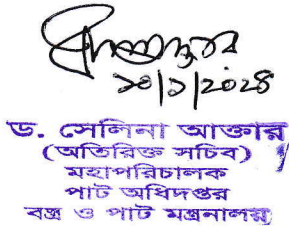 ১০/১/২০২৪
ড. সেলিনা আক্তার
(অতিরিক্ত সচিব)
মহাপরিচালক
পাট অধিদপ্তর
বস্ত্র ও পাট মন্ত্রনালয়